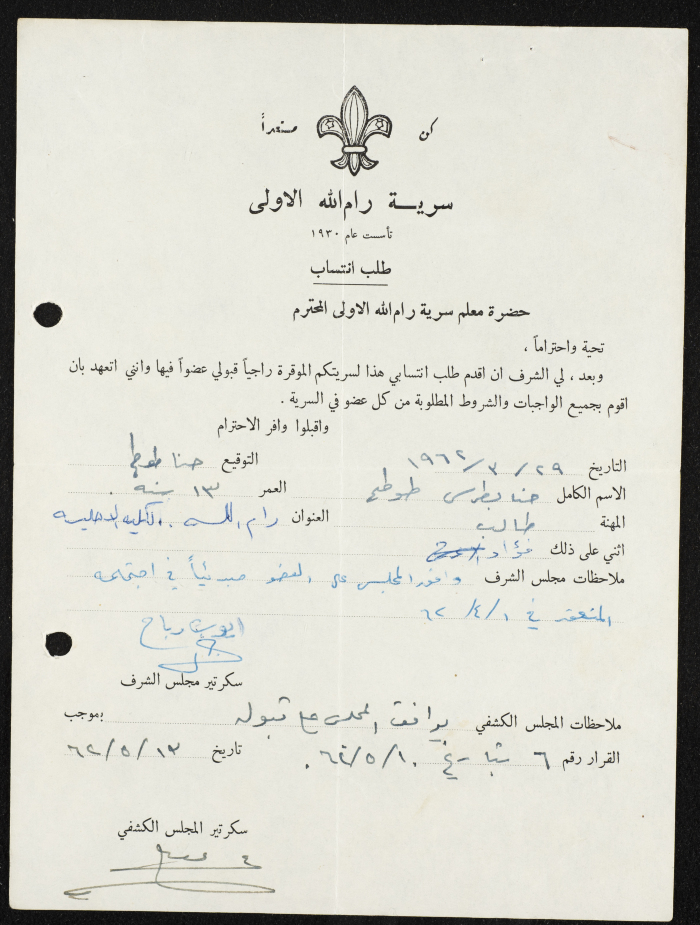 كن مستعداً
سرية رام الله الاولى
تأسست عام ١٩٣٠
طلب انتساب
حضرة معلم سرية رام الله الاولى المحترم
تحية واحتراماً ،
وبعد ، لي الشرف ان اقدم طلب انتسابي هذا لسريتكم الموقرة راجياً قبولي عضواً فيها وانني اتعهد بان
اقوم بجميع الواجبات والشروط المطلوبة من كل عضو في السرية .
واقبلوا وافر الاحترام
التاريخ ٢٩ / ٣ / ١٩٦٢ التوقيع حنا طوطح
الاسم الكامل حنا بطرس طوطح العمر ١٣ سنة .
المهنة طالب العنوان رام الله .. الكلية الاهلية
اثني على ذلك فؤاد
ملاحظات مجلس الشرف وافق المجلس على العضو مبدئياً في اجتماعه
المنعقد في ١ /٤/ ٦٢
ايوب رباح
سكرتير مجلس الشرف
ملاحظات المجلس الكشفي يوافق المجلس على قبوله بموجب
القرار رقم ٦ بتاريخ ٦٢/٥/١٠ . تاريخ ٦٢/٥/١٣
سكرتير المجلس الكشفي